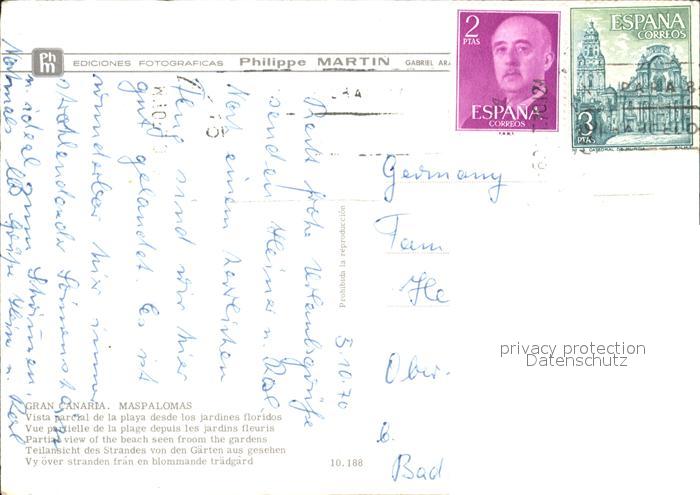 EDICIONES FOTOGRAFICAS Philippe MARTIN GABRIEL ARA
2 PTAS
ESPAÑA
CORREOS
ESPAÑA
CORREOS
3 PTAS
Recht frohe Urlaubsgrüße
senden Heinz u. Rosl.
Nach einem herrlichen
Flug sind wir hier
gut gelandet. Es ist
wunderbar hier immer
strahlender Sonnenschein
ideal zum Schwimmen.
Nochmals lb. Grüße Heinz u. Rosl
3.10.70
Germany
Fam
He
Ober.
b.
Bad
Prohibida la reproducción
privacy protection
Datenschutz
GRAN CANARIA. MASPALOMAS
Vista parcial de la playa desde los jardines floridos
Vue partielle de la plage depuis les jardins fleuris
Partial view of the beach seen froom the gardens
Teilansicht des Strandes von den Gärten aus gesehen
Vy över stranden från en blommande trädgård
10.188